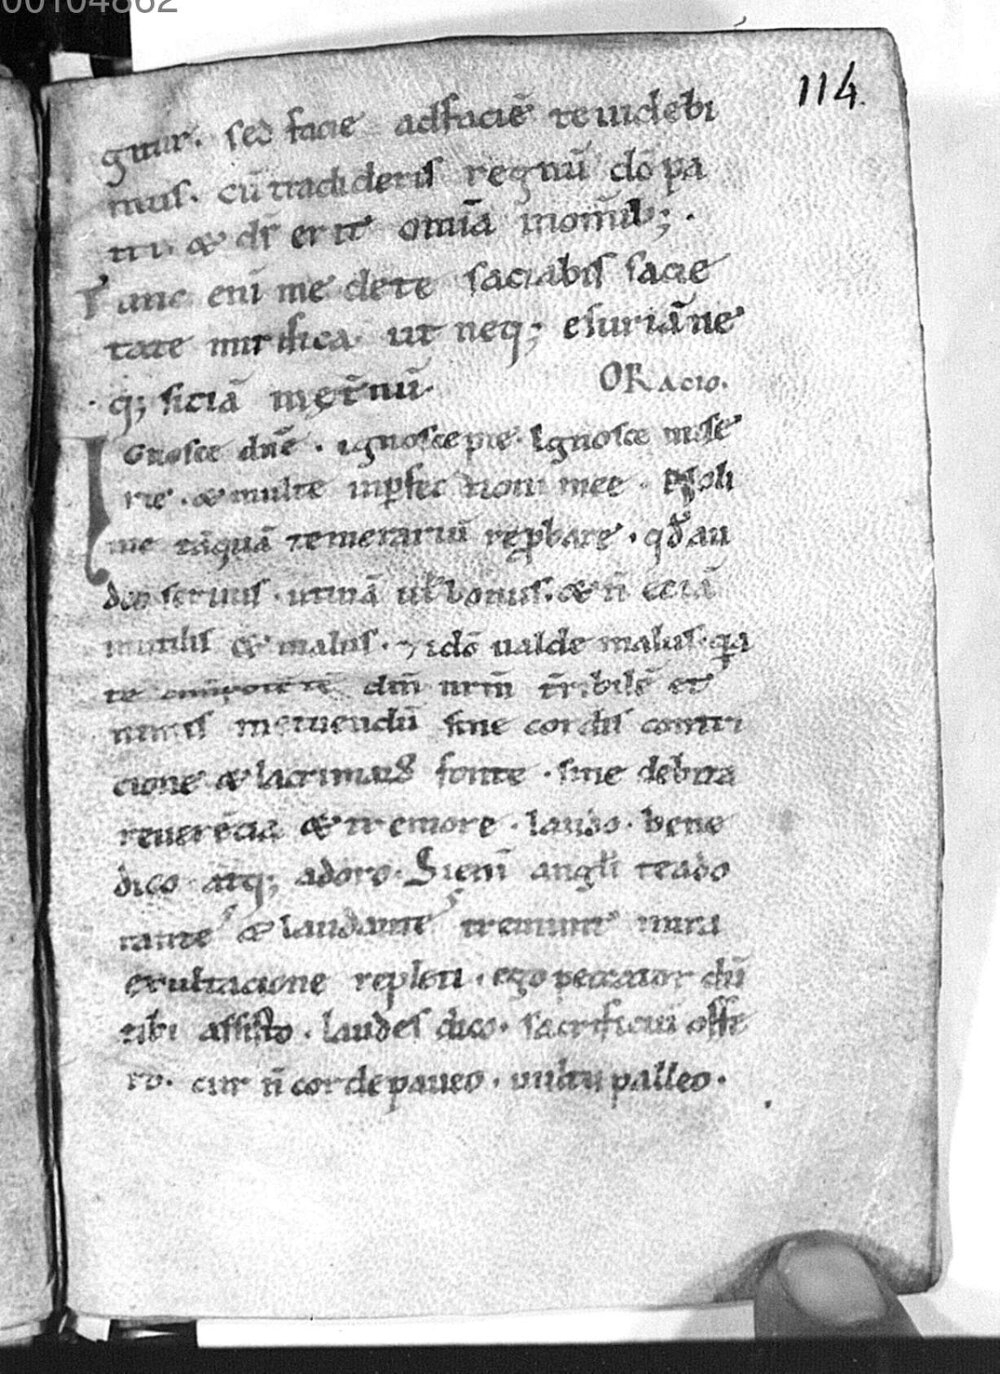 00104862
114
gmur. sed facie adfaciē te uidebi
mus. cū tradideris regnū dō pa
tri. & ds̄ erit omīa inomīb;.
Tunc enī me dete saciabis sacie
tate mirifica. ut neq; esuriā ne
q; siciā inęt̄nū.
ORacio.
Ignosce dn̄e. ignosce pie. Ignosce mise
rie. & multe inꝑfectioni mee. Noli
me tāquā temerariū reꝓbare. qd̄ au
deo seruus. utinā ul̄ bonus. & n̄ eciā
inutilis & malus. & idō ualde malus. qa
te dm̄ nr̄m t̄ribilē et
nimis metuendū sine cordis contri
cione & lacrimarꝝ fonte. sine debita
reuerēcia & tremore. laudo. bene
dico atq; adoro. Si enī angl̄i te ado
rantes & laudantes tremunt mira
exultacione repleti. ego peccator dū
tibi assisto. laudes dico. sacrificiū offe
ro. cur n̄ corde paueo. uultu palleo.